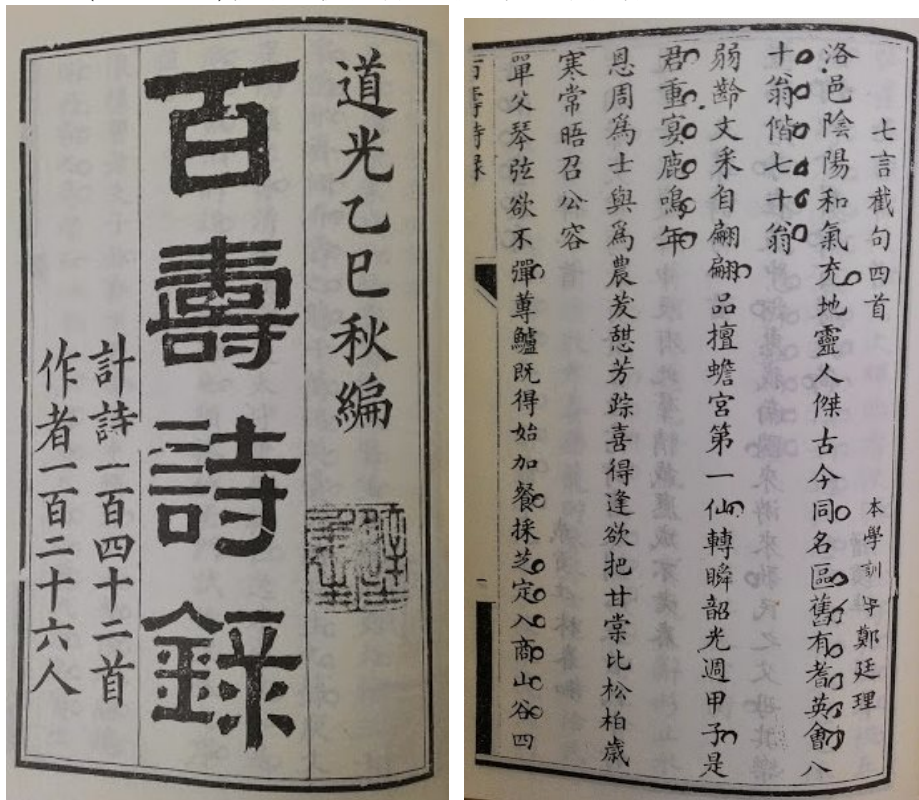 道光乙巳秋編
百壽詩錄
計詩一百四十二首
作者一百二十六人
七言截句四首
本學訓鄭廷理
洛邑陰陽和氣充地靈人傑古今同名區舊有耆英會八
十翁偕七十翁
弱齡文采自翩翩品擅蟾宮第一仙轉瞬韶光週甲子是
君重宴鹿鳴年
恩周爲士與爲農茇憩芳踪喜得逢欲把甘棠比松柏歲
寒常晤召公容
單父琴弦欲不彈蓴鱸既得始加餐採芝定入商山谷四
百壽詩錄